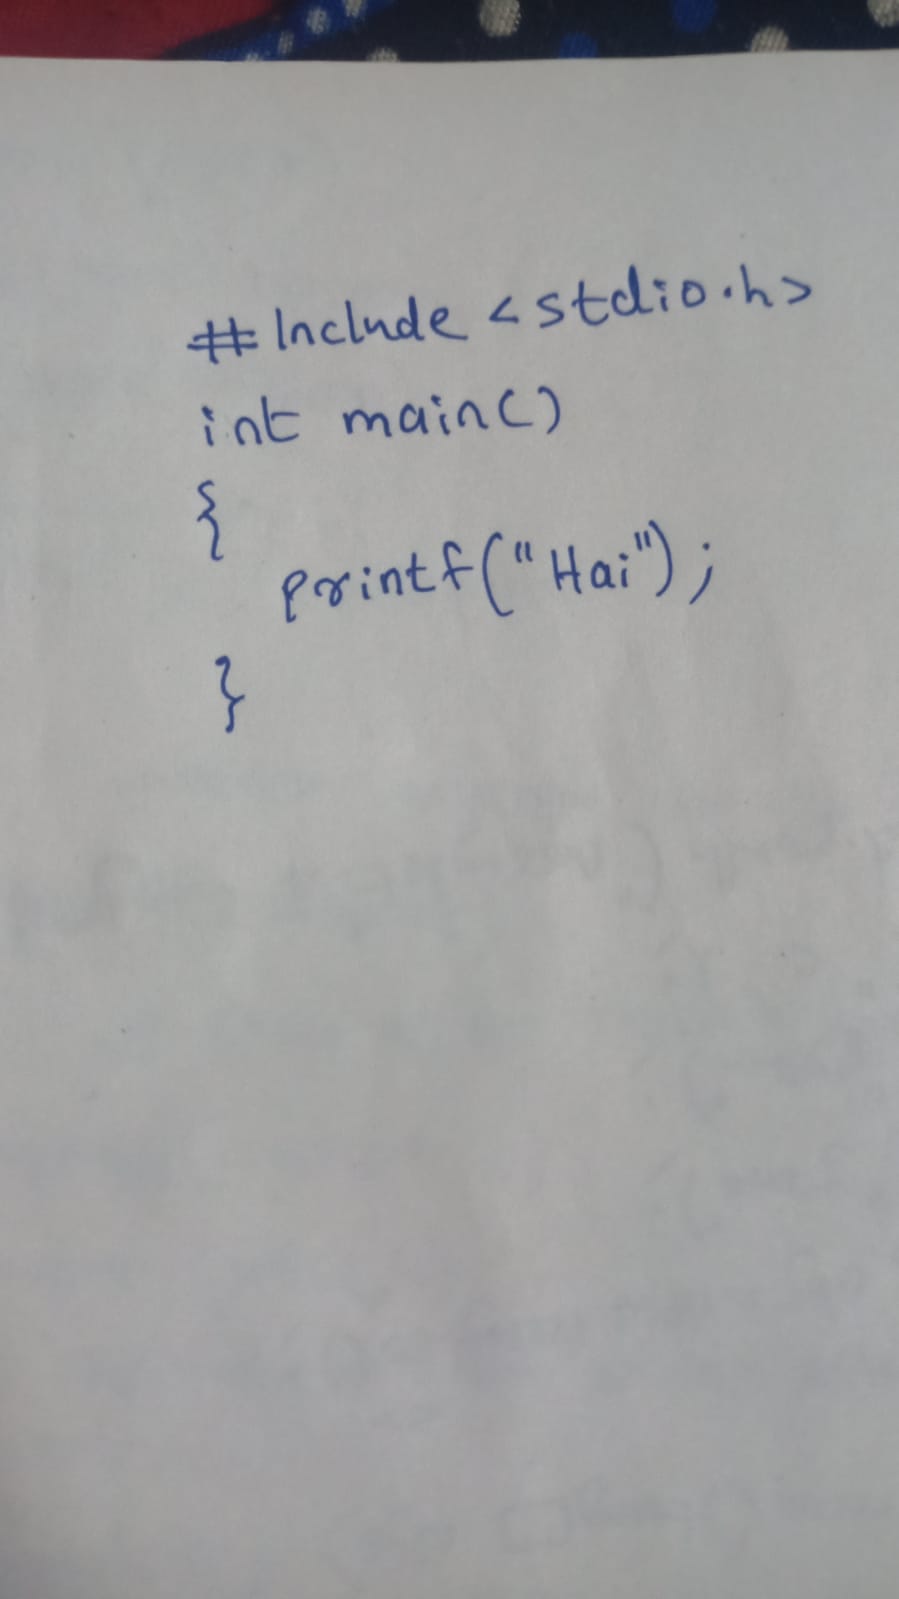 #Include <stdio.h>
int main()
{
printf("Hai");
}